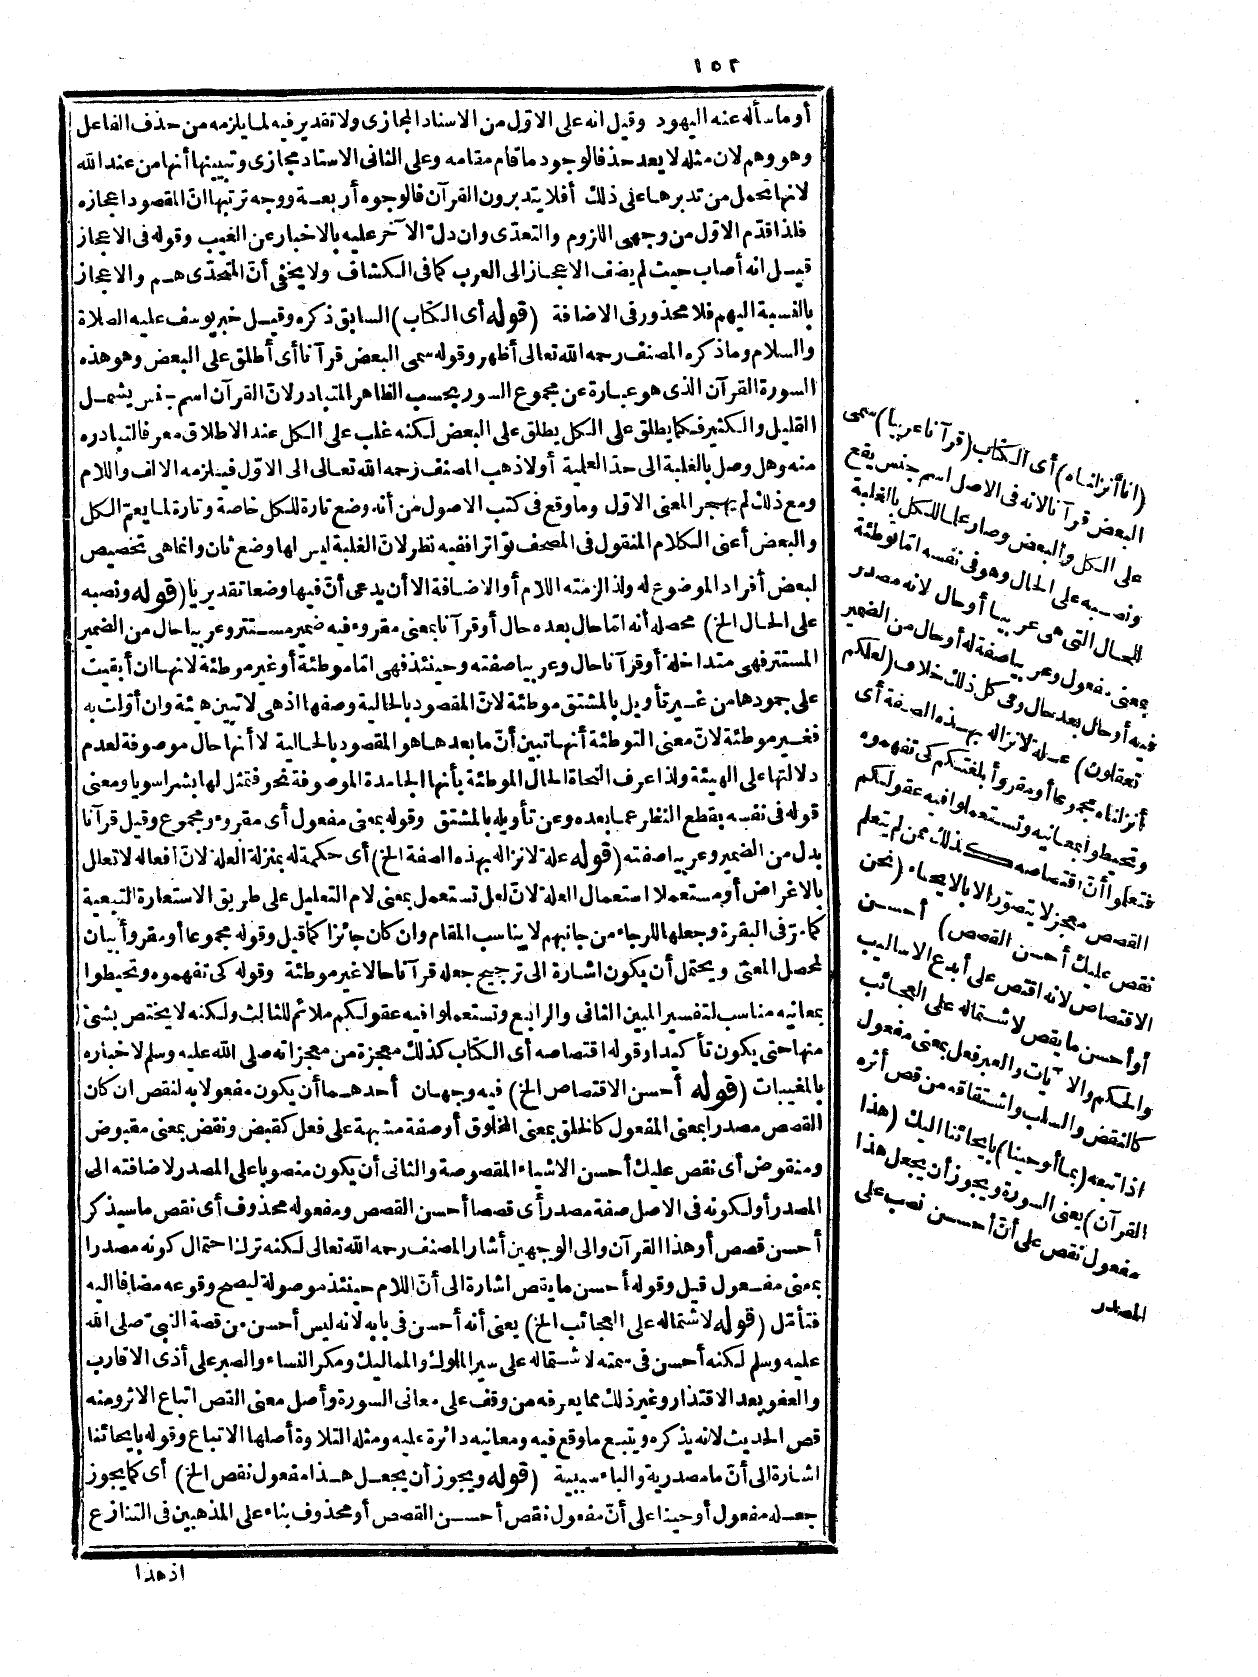 ١٥٢
أو ما سأله عنه اليهود وقيل انه على الاوّل من الاسناد المجازى ولا تقدير فيه لما يلزمه من حذف الفاعل
وهو وهم لان مثله لا يعد حذفا لوجود ما قام مقامه وعلى الثانى الاسناد مجازى وتبيينها أنها من عند الله
لانها تحمل من تدبرها على ذلك أفلا يتدبرون القرآن فالوجوه أربعة ووجه ترتبها انّ المقصود اعجازه
فلذا قدّم الاوّل من وجهى اللزوم والتعدّى وان دلّ الآخر عليه بالاخبار عن الغيب وقوله فى الاعجاز
قيل انه أصاب حيث لم يضف الاعجاز الى العرب كما فى الكشاف ولا يخفى أنّ المتحدّى هم والاعجاز
بالنسبة اليهم فلا محذور فى الاضافة (قوله أى الكتاب) السابق ذكره وقيل خبر يوسف عليه الصلاة
والسلام وما ذكره المصنف رحمه الله تعالى أظهر وقوله سمى البعض قرآنا أى أطلق على البعض وهو هذه
السورة القرآن الذى هو عبارة عن مجموع السور بحسب الظاهر المتبادر لانّ القرآن اسم جنس يشمل
القليل والكثير فكما يطلق على الكل يطلق على البعض لكنه غلب على الكل عند الاطلاق معرفا لتبادره
منه وهل وصل بالغلبة الى حدّ العلمية أولا ذهب المصنف رحمه الله تعالى الى الاوّل فيلزمه الالف واللام
ومع ذلك لم يهجر المعنى الاوّل وما وقع فى كتب الاصول من أنه وضع تارة للكل خاصة وتارة لما يعمّ الكل
والبعض أعنى الكلام المنقول فى المصحف تواترا ففيه نظر لانّ الغلبة ليس لها وضع ثان وانما هى تخصيص
لبعض أفراد الموضوع له ولذا لزمته اللام أو الاضافة الا أن يدعى أنّ فيها وضعا تقديريا (قوله ونصبه
على الحال الخ) محصله أنه امّا حال بعده حال أو قرآنا بمعنى مقروء فيه ضمير مستتر وعربيا حال من الضمير
المستتر فهى متداخلة أو قرآنا حال وعربيا صفته وحينئذ فهى امّا موطئة أو غير موطئة لانها ان أبقيت
على جمودها من غير تأويل بالمشتق موطئة لانّ المقصود بالحالية وصفها اذ هى لا تبين هيئة وان أوّلت به
فغير موطئة لانّ معنى التوطئة أنها تبين أنّ ما بعدها هو المقصود بالحالية لا أنها حال موصوفة لعدم
دلالتها على الهيئة ولذا عرف النحاة الحال الموطئة بأنها الجامدة الموصوفة نحو فتمثل لها بشرا سويا ومعنى
قوله فى نفسه بقطع النظر عما بعده وعن تأويله بالمشتق وقوله بمعنى مفعول أى مقروء ومجموع وقيل قرآنا
بدل من الضمير وعربيا صفته (قوله علة لانزاله بهذه الصفة الخ) أى حكمية له بمنزلة العلة لانّ أفعاله لا تعلل
بالاغراض أو مستعملا استعمال العلة لانّ لعل تستعمل بمعنى لام التعليل على طريق الاستعارة التبعية
كما مرّ فى البقرة وجعلها للرجاء من جانبهم لا يناسب المقام وان كان جائزا كما قيل وقوله مجموعا أو مقروأ بيان
لمحصل المعنى ويحتمل أن يكون اشارة الى ترجيح جعله قرآنا حالا غير موطئة وقوله كى تفهموه وتحيطوا
بمعانيه مناسب لتفسير المبين الثانى والرابع وتستعملوا فيه عقولكم ملائم للثالث ولكنه لا يختص بشئ
منها حتى يكون تأكيدا وقوله اقتصاصه أى الكتاب كذلك معجزة من معجزاته صلى الله عليه وسلم لاخباره
بالمغيبات (قوله أحسن الاقتصاص الخ) فيه وجهان أحدهما أن يكون مفعولا به لنقص ان كان
القصص مصدرا بمعنى المفعول كالخلق بمعنى المخلوق أو صفة مشبهة على فعل كقبض ونقض بمعنى مقبوض
ومنقوض أى نقص عليك أحسن الاشياء المقصوصة والثانى أن يكون منصوبا على المصدر لاضافته الى
المصدر أو لكونه فى الاصل صفة مصدر أى قصصا أحسن القصص ومفعوله محذوف أى نقص ما سيذكر
أحسن قصص أو هذا القرآن والى الوجهين أشار المصنف رحمه الله تعالى لكنه ترك احتمال كونه مصدرا
بمعنى مفعول قيل وقوله أحسن ما يقص اشارة الى أنّ اللام حينئذ موصولة ليصح وقوعه مضافا اليه
فتأمّل (قوله لاشتماله على العجائب الخ) يعنى أنه أحسن فى بابه لانه ليس أحسن من قصة النبىّ صلى الله
عليه وسلم لكنه أحسن فى سمته لاشتماله على سير الملوك والمماليك ومكر النساء والصبر على أذى الاقارب
والعفو بعد الاقتدار وغير ذلك مما يعرفه من وقف على معانى السورة وأصل معنى القص اتباع الاثر ومنه
قص الحديث لانه يذكره ويتبع ما وقع فيه ومعانيه دائرة عليه ومثله التلاوة أصلها الاتباع وقوله بايحائنا
اشارة الى أنّ ما مصدرية والباء سببية (قوله ويجوز أن يجعل هذا مفعول نقص الخ) أى كما يجوز
جعله مفعول أوحينا على أنّ مفعول نقص أحسن القصص أو محذوف بناء على المذهبين فى التنازع
اذ هذا
(انا أنزلناه) أى الكتاب (قرآنا عربيا) سمى
البعض قرآنا لانه فى الاصل اسم جنس يقع
على الكل والبعض وصار علما للكل بالغلبة
ونصبه على الحال وهو فى نفسه امّا توطئة
للحال التى هى عربيا أو حال لانه مصدر
بمعنى مفعول وعربيا صفة له أو حال من الضمير
فيه أو حال بعد حال وفى كل ذلك خلاف (لعلكم
تعقلون) علة لانزاله بهذه الصفة أى
أنزلناه مجموعا أو مقروأ بلغتكم كى تفهموه
وتحيطوا بمعانيه وتستعملوا فيه عقولكم
فتعلموا أنّ اقتصاصه كذلك ممن لم يتعلم
القصص معجز لا يتصوّر الا بالايحاء (نحن
نقص عليك أحسن القصص) أحسن
الاقتصاص لانه اقتص على أبدع الاساليب
أو أحسن ما يقص لاشتماله على العجائب
والحكم والآيات والعبر فعل بمعنى مفعول
كالنقض والسلب واشتقاقه من قص أثره
اذا تبعه (بما أوحينا) بايحائنا اليك (هذا
القرآن) يعنى السورة ويجوز أن يجعل هذا
مفعول نقص على أنّ أحسن نصب على
المصدر